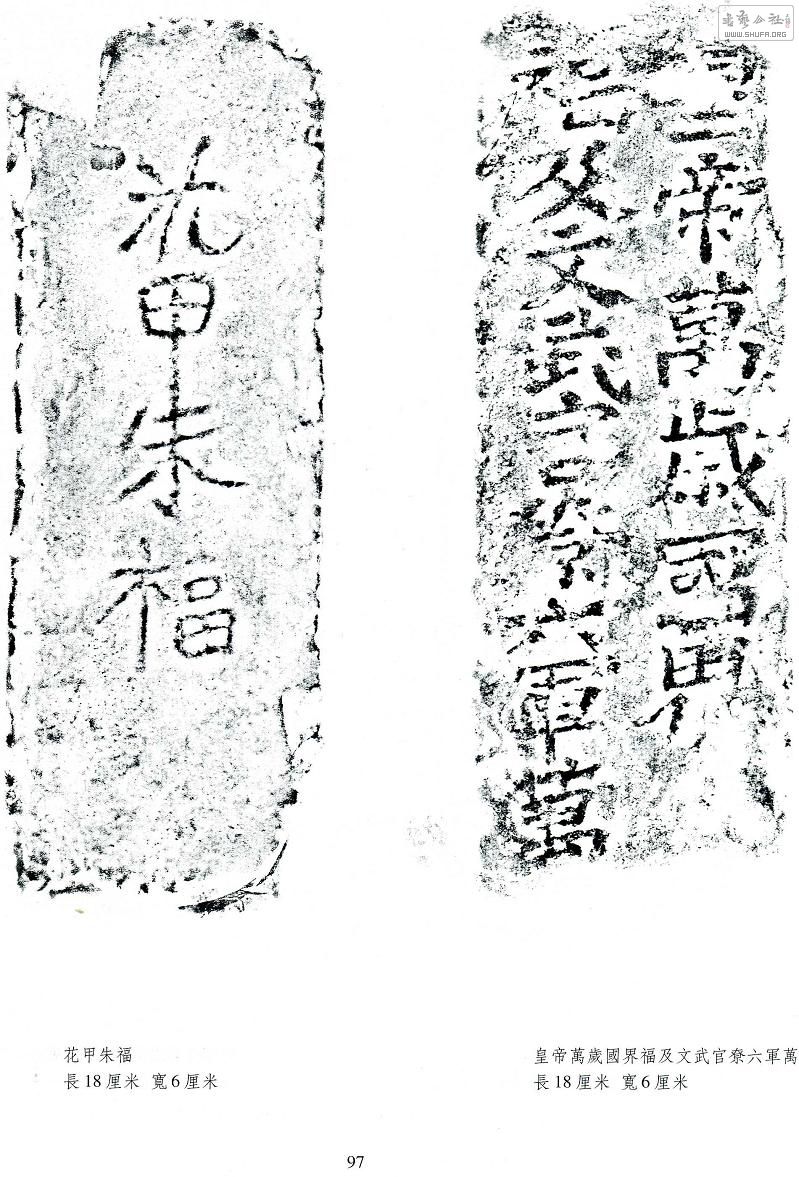 书艺公社
WWW.SHUFA.ORG
皇帝萬歲國界
福及文武官尞六軍萬
花甲朱福
花甲朱福
長18厘米 寬6厘米
皇帝萬歲國界福及文武官尞六軍萬
長18厘米 寬6厘米
97